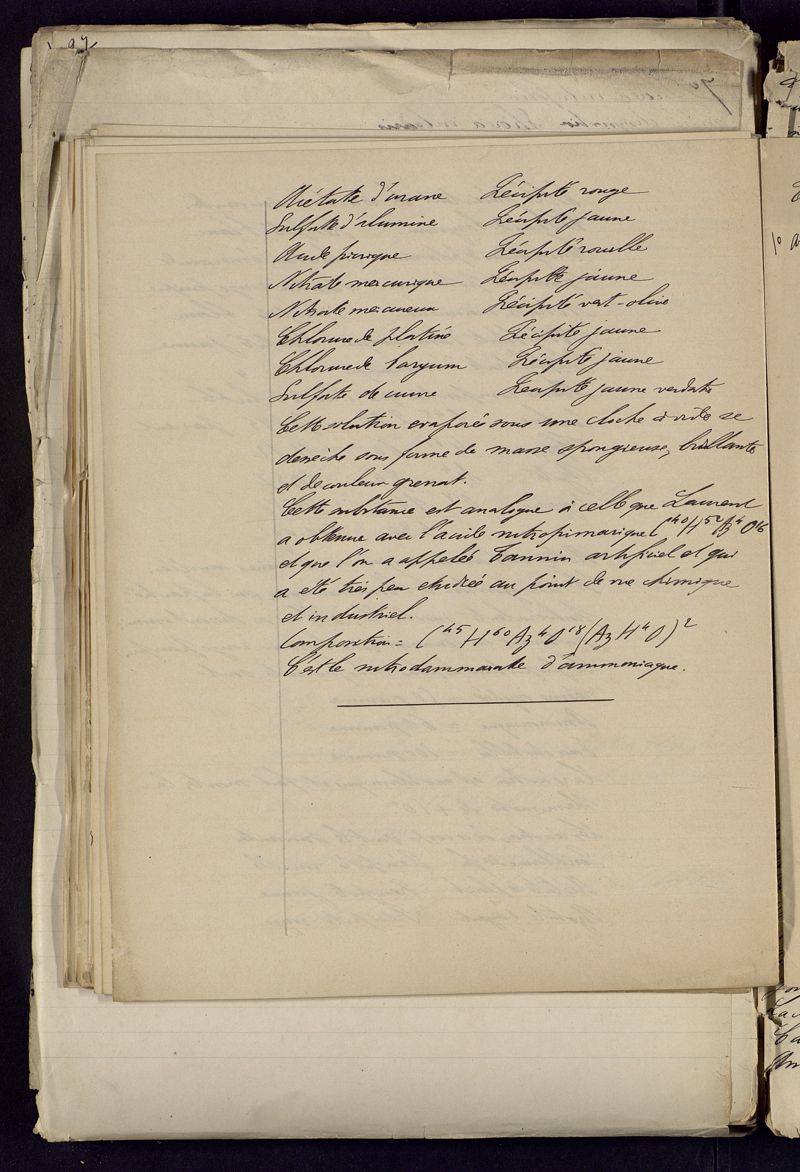 Acétate d'urane Précipité rouge
Sulfate d'alumine Précipité jaune
Acide picrique Précipité rouille
Nitrate mercurique Précipité jaune
Nitrate mercureux Précipité vert-olive
Chlorure de platine Précipité jaune
Chlorure de baryum Précipité jaune
Sulfate de cuivre Précipité jaune verdatre
Cette solution evaporée sous une cloche à vide se
desseche sous forme de masse spongieuse, brillante
et de couleur grenat.
Cette substance est analogue à celle que Laurent
a obtenue avec l'acide nitropimarique C⁴⁰H⁵²Az⁴O¹⁶
et que l'on a appelée Tannin artificiel et qui
a été très peu etudiée au point de vue chimique
et industriel.
Composition = C⁴⁵H⁶⁰Az⁴O¹⁸(AzH⁴O)²
C'est le nitrodammarate d'ammoniaque.